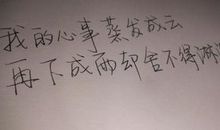 我的心事蒸发成云
再下成雨却舍不得淋